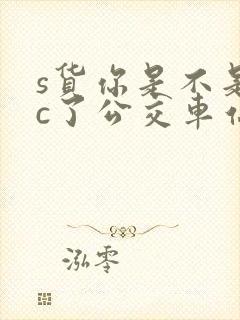 s货你是不是
c了公交车
泓零